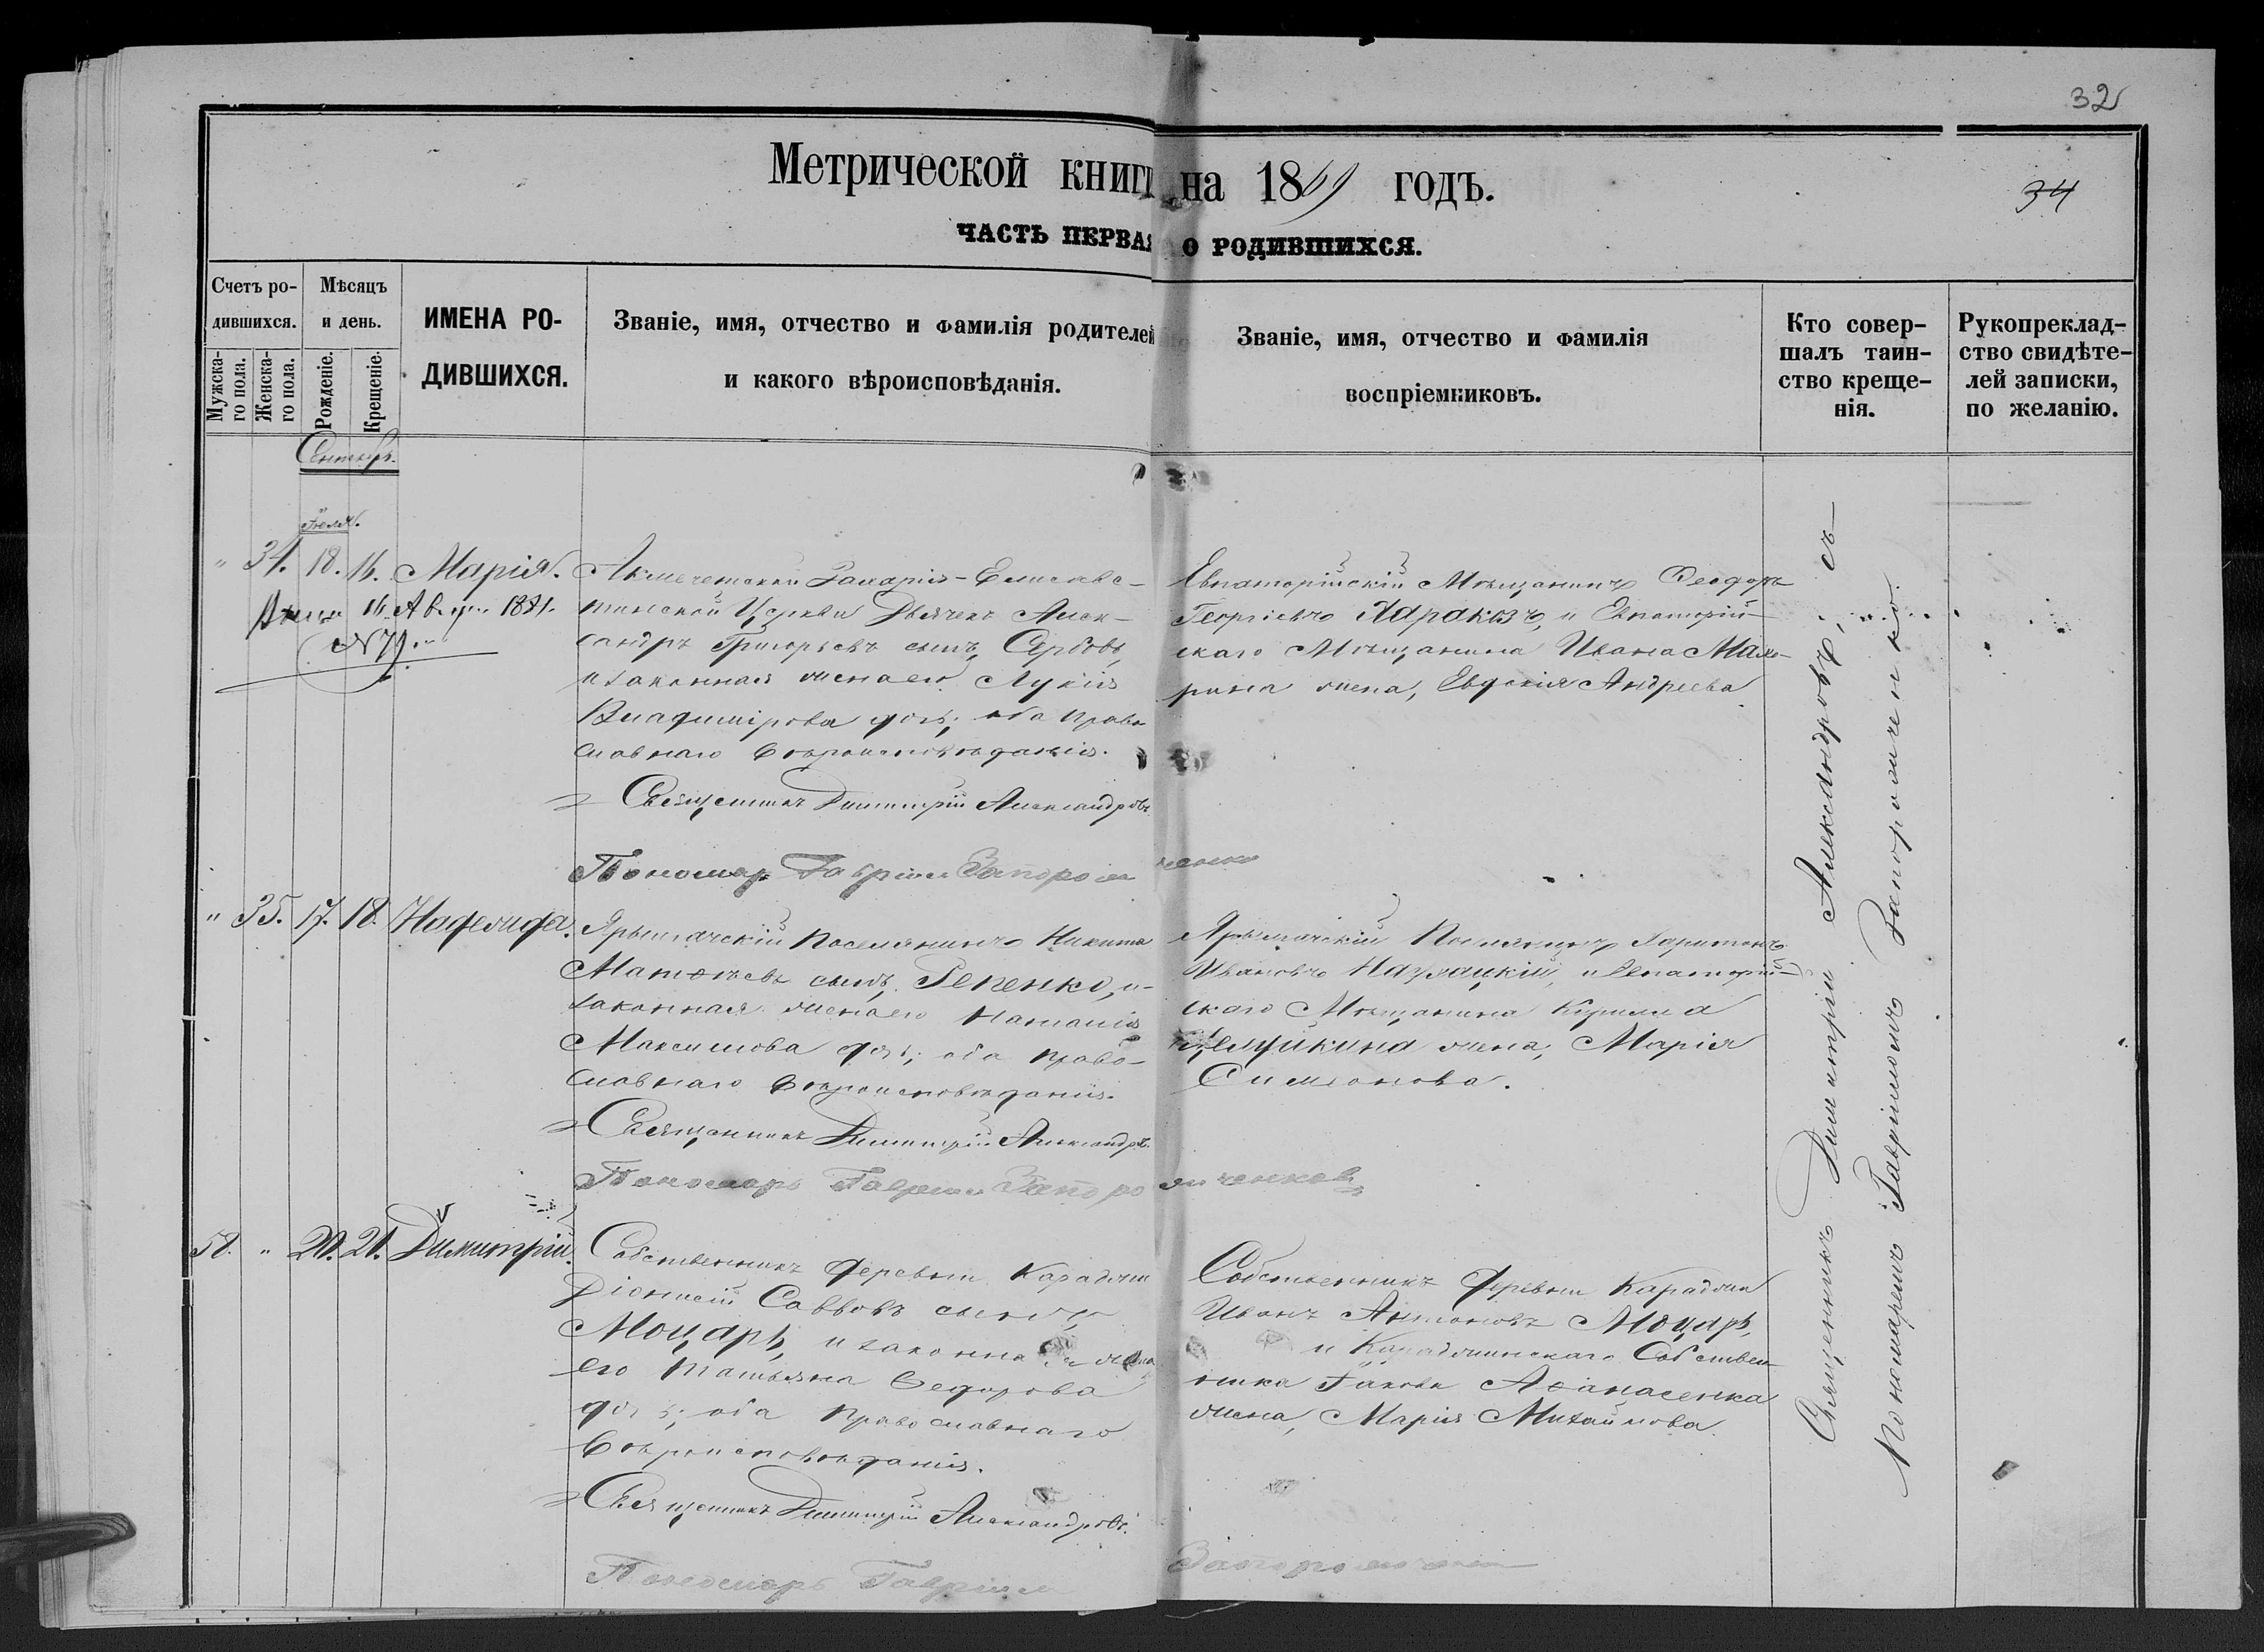 32
Метрической книги на 1869 годъ.
34
ЧАСТЬ ПЕРВАЯ О РОДИВШИХСЯ.
Счетъ ро-
дившихся.
Мужска-
го пола.
Женска-
го пола.
Мѣсяцъ
и день.
Рожденіе.
Крещеніе.
ИМЕНА РО-
ДИВШИХСЯ.
Званіе, имя, отчество и фамилія родителей
и какого вѣроисповѣданія.
Званіе, имя, отчество и фамилія
воспріемниковъ.
Кто совер-
шалъ таин-
ство креще-
нія.
Рукоприклад-
ство свидѣте-
лей записки,
по желанію.
Сентябрь.
Іюля.
" 34. 18. 14. Марія.
14 Август. 1881.
№ 79
Акмечетской Захаріе-Елисаве-
тинской Церкви Дьячекъ Алек-
сандръ Григорьевъ сынъ, Сербовъ,
и законная жена его Лукія
Владимірова дочь; оба право-
славнаго вѣроисповѣданія.
Священникъ Димитрій Александровъ
Пономарь Гавріилъ Запорожченко
Евпаторійскій Мѣщанинъ Феодоръ
Георгіевъ Харакозъ, и Евпаторій-
скаго Мѣщанина Ивана
жена, Евдокія Андреева
" 35. 17. 18. Надежда.
Ярылгачскій Поселянинъ Никита
Матвѣевъ сынъ, Репенко, и
законная жена его Наталія
Максимова дочь; оба право-
славнаго вѣроисповѣданія.
Священникъ Димитрій Александровъ
Пономарь Гавріилъ Запорожченковъ
Ярылгачскій Поселянинъ Харитонъ
Ивановъ и Евпаторій-
скаго Мѣщанина Кирилла
жена, Марія
Симеонова.
58. " 20. 21. Димитрій.
Собственникъ деревни Караджи
Діонисій Саввовъ сынъ,
Моцарь, и законная жена
его Татьяна Федорова
дочь; оба Православнаго
вѣроисповѣданія.
Священникъ Димитрій Александровъ.
Пономарь Гавріилъ Запорожченко
Собственникъ деревни Караджи
Иванъ Антоновъ Моцарь,
и Караджинскаго Собствен-
ника Іакова Афанасенка
жена, Марія Михайлова.
Священникъ Димитрій Александровъ, съ
Пономаремъ Гавріиломъ Запорожченко.